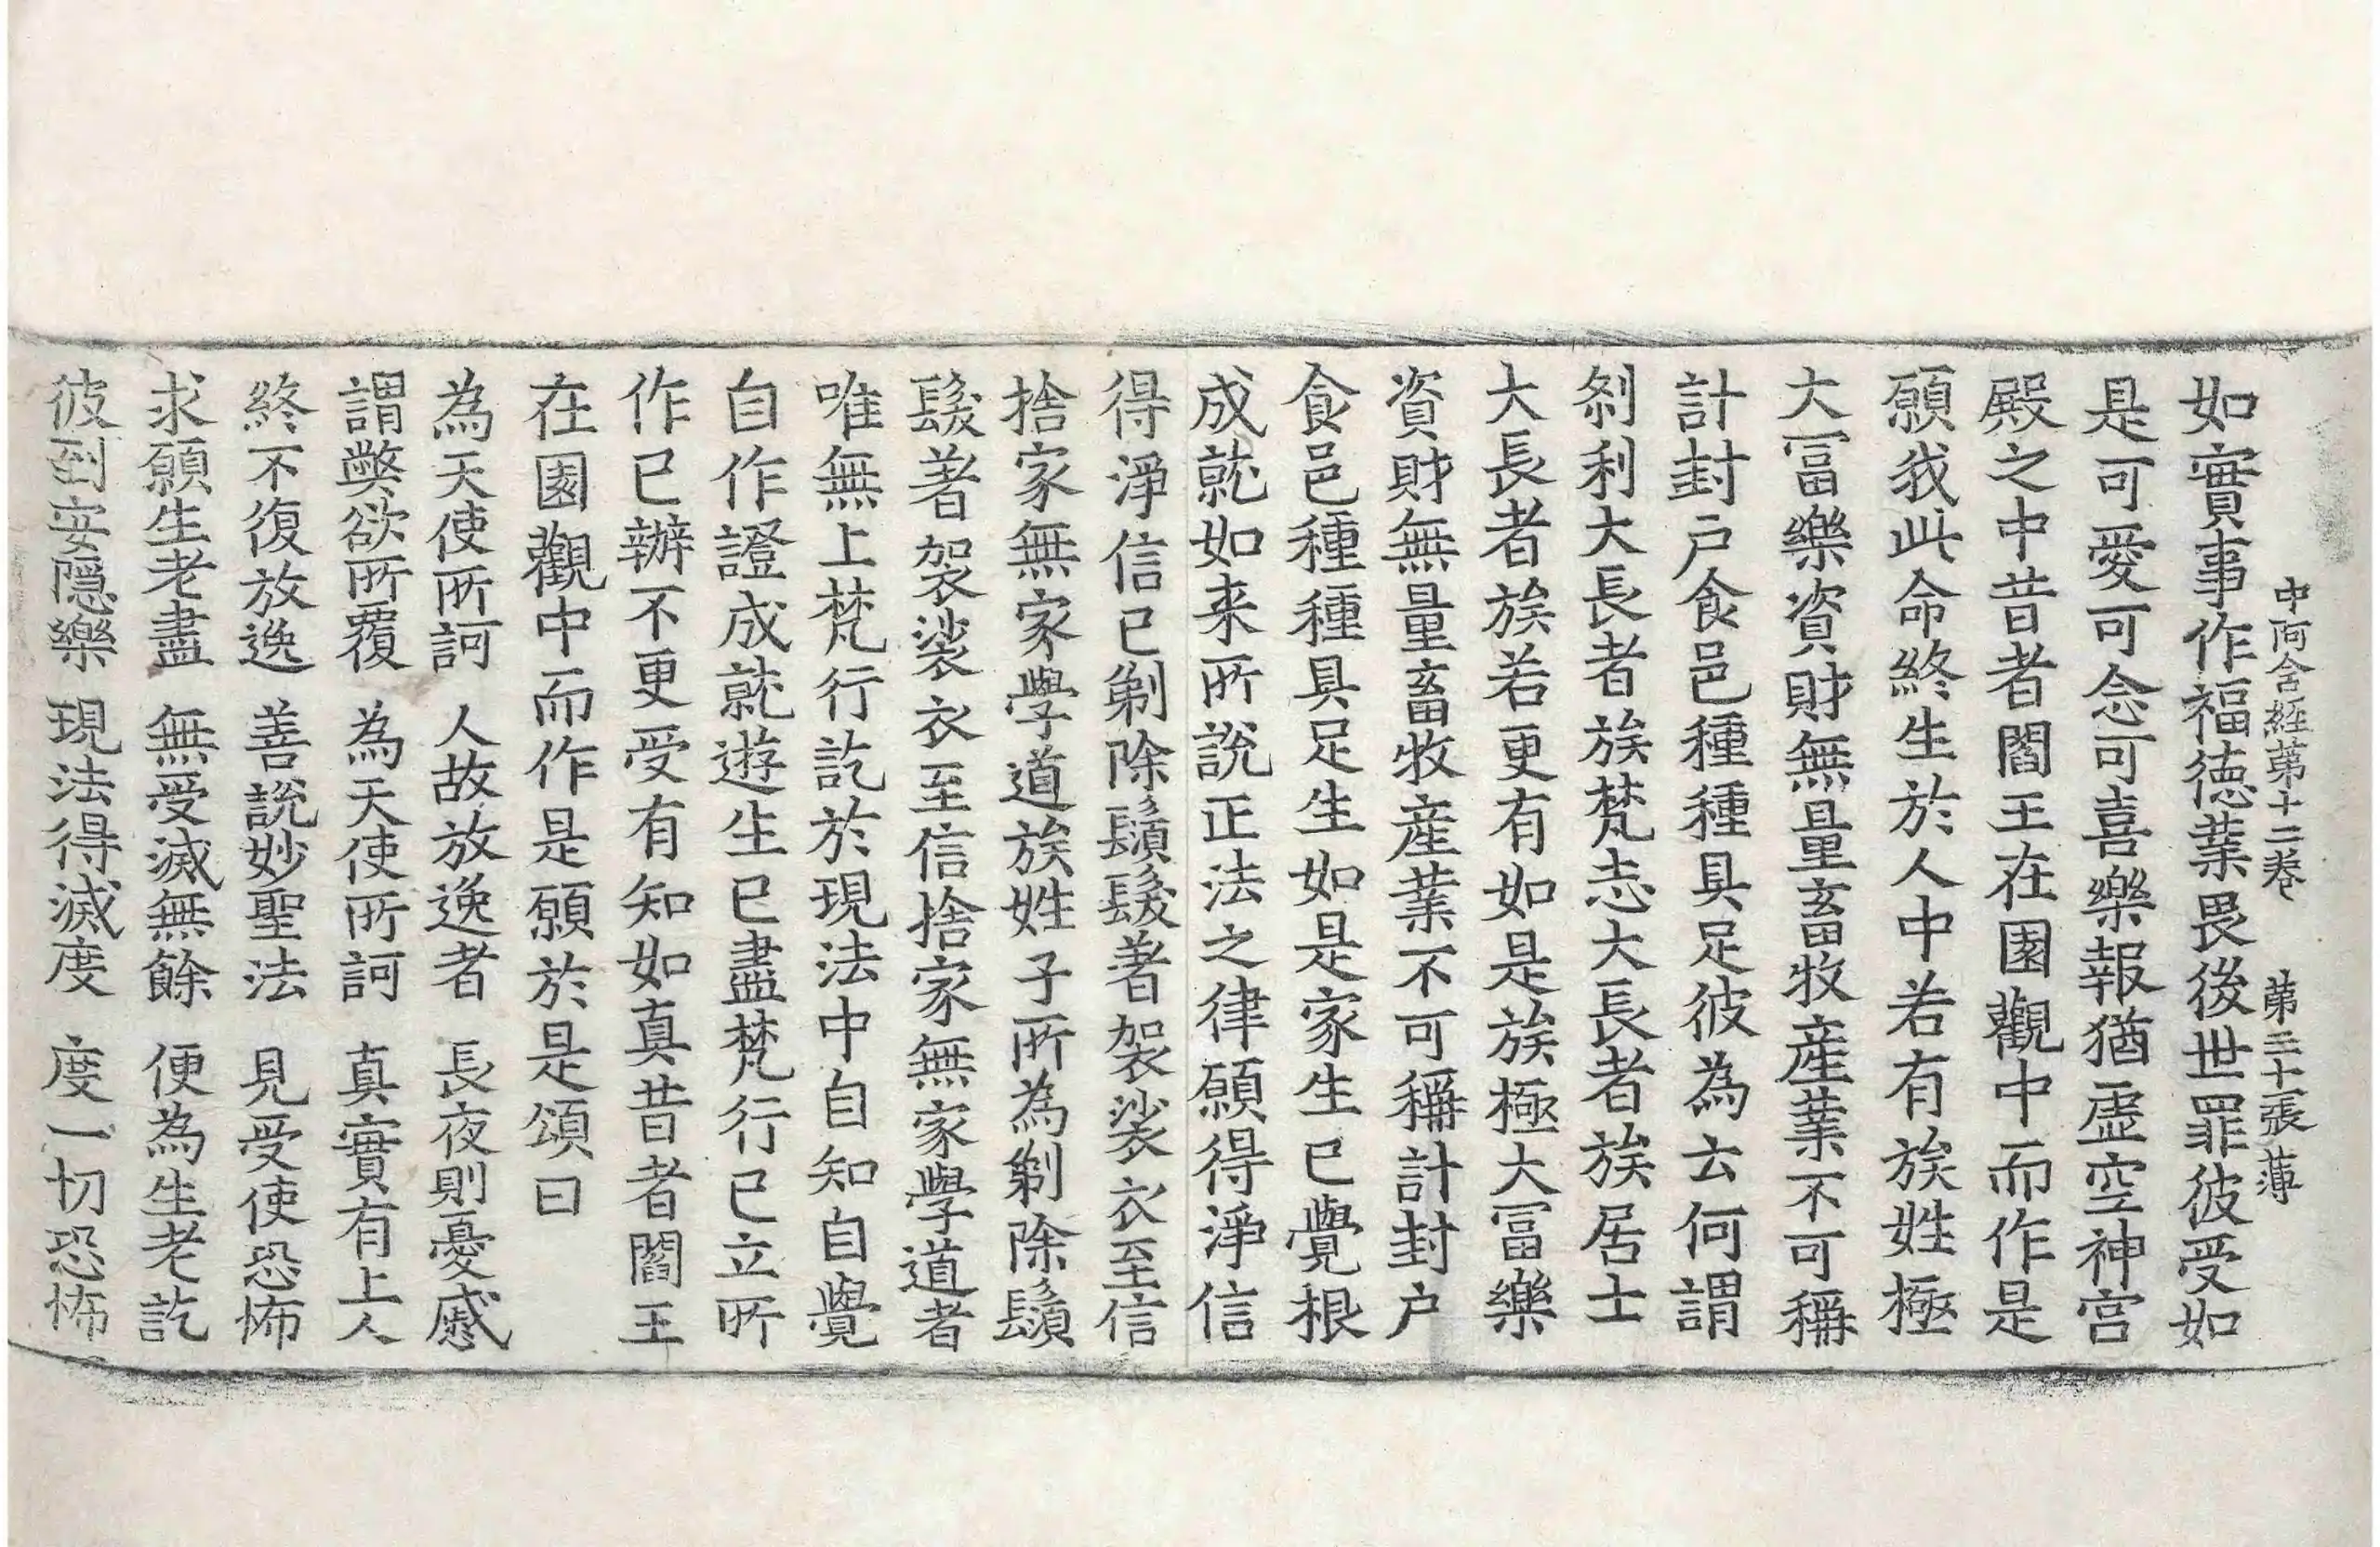 中阿含經第十二卷　第三十張　薄
如實事作福德業畏後世罪彼受如
是可愛可念可喜樂報猶虛空神宮
殿之中昔者閻王在園觀中而作是
願我此命終生於人中若有族姓極
大冨樂資財無量畜牧産業不可稱
計封户食邑種種具足彼為云何謂
刹利大長者族梵志大長者族居士
大長者族若更有如是族極大冨樂
資財無量畜牧産業不可稱計封户
食邑種種具足生如是家生已覺根
成就如来所說正法之律願得淨信
得淨信已剃除鬚髮著袈裟衣至信
捨家無家學道族姓子所為剃除鬚
髮著袈裟衣至信捨家無家學道者
唯無上梵行訖於現法中自知自覺
自作證成就遊生已盡梵行已立所
作已辦不更受有知如真昔者閻王
在園觀中而作是願於是頌曰
為天使所訶　人故放逸者　長夜則憂慼
謂弊欲所覆　為天使所訶　真實有上人
終不復放逸　善說妙聖法　見受使恐怖
求願生老盡　無受滅無餘　便為生老訖
彼到安隱樂　現法得滅度　度一切恐怖